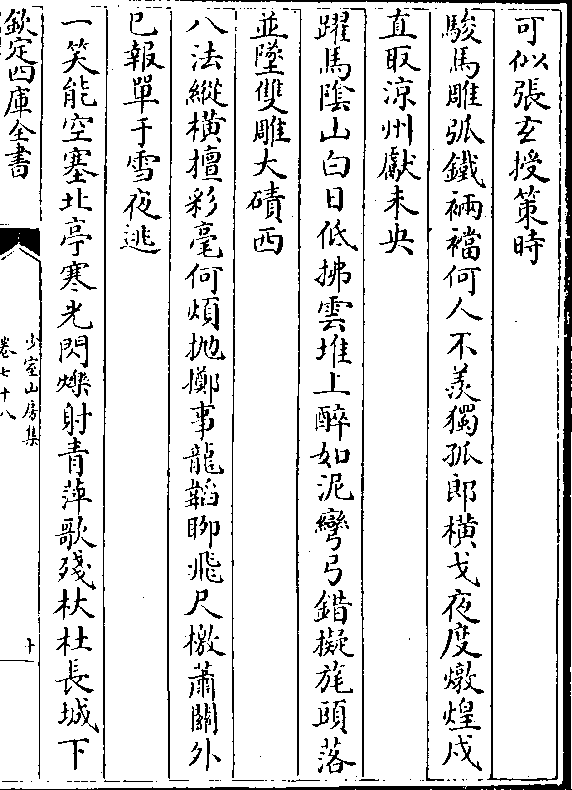 可似張玄授策時
駿馬雕弧鐵裲襠何人不羨獨孤郎橫戈夜度燉煌戍
直取涼州獻未央
躍馬陰山白日低拂雲堆上醉如泥彎弓錯擬旄頭落
並墜雙雕大磧西
八法縱橫擅彩毫何煩抛擲事龍韜聊飛尺檄蕭關外
已報單于雪夜逃
一笑能空塞北亭寒光閃爍射青萍歌殘杕杜長城下
欽定四庫全書
少室山房集
卷七十八
十